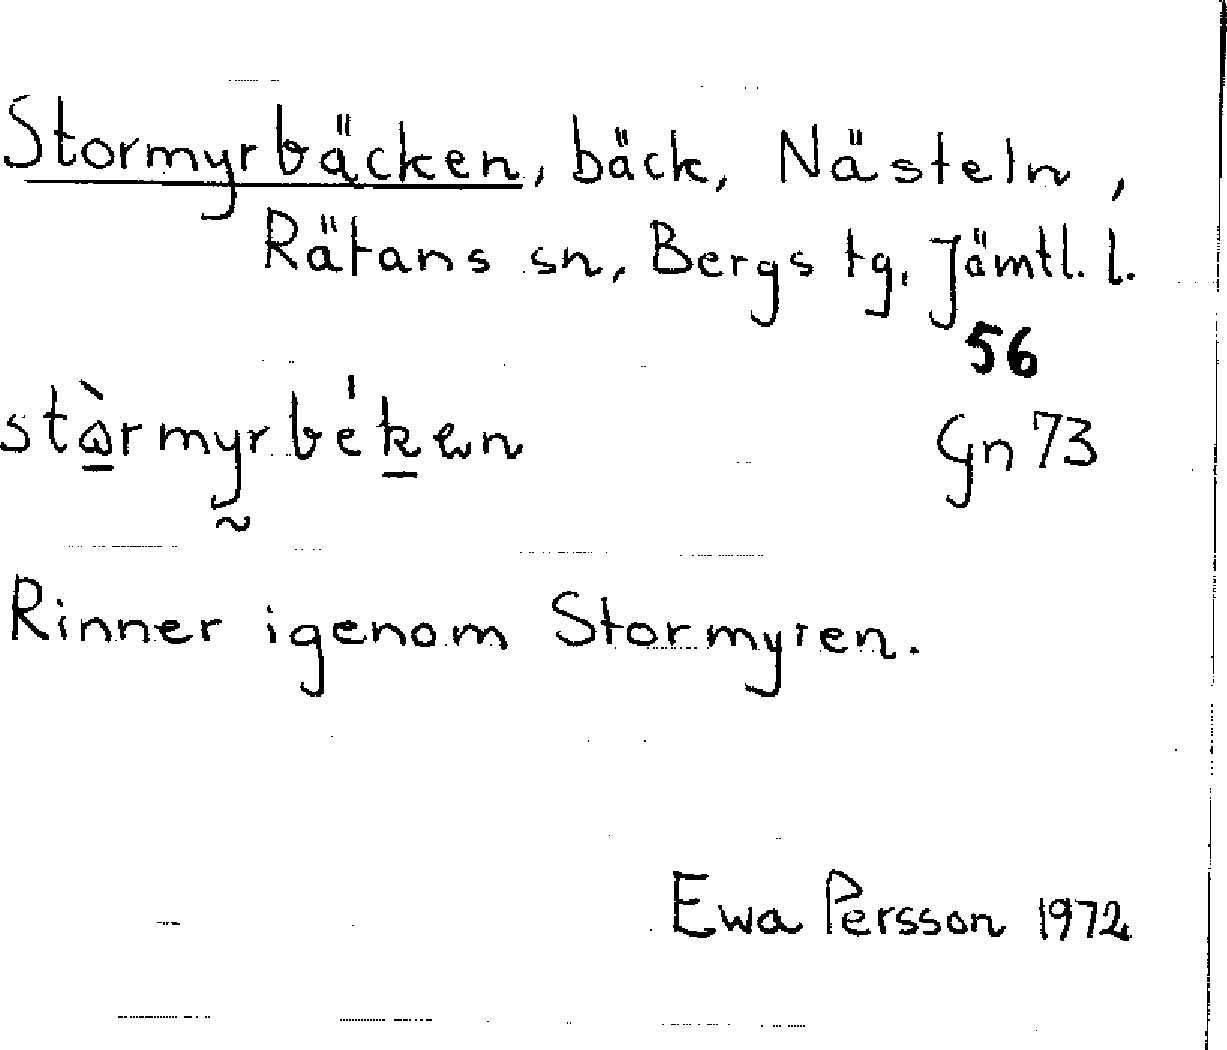 Stormyrbäcken, bäck, Nästeln,
Rätans sn, Bergs tg, Jämtl. l.
56
Gn 73
Rinner igenom Stormyren.
Ewa Persson 1972